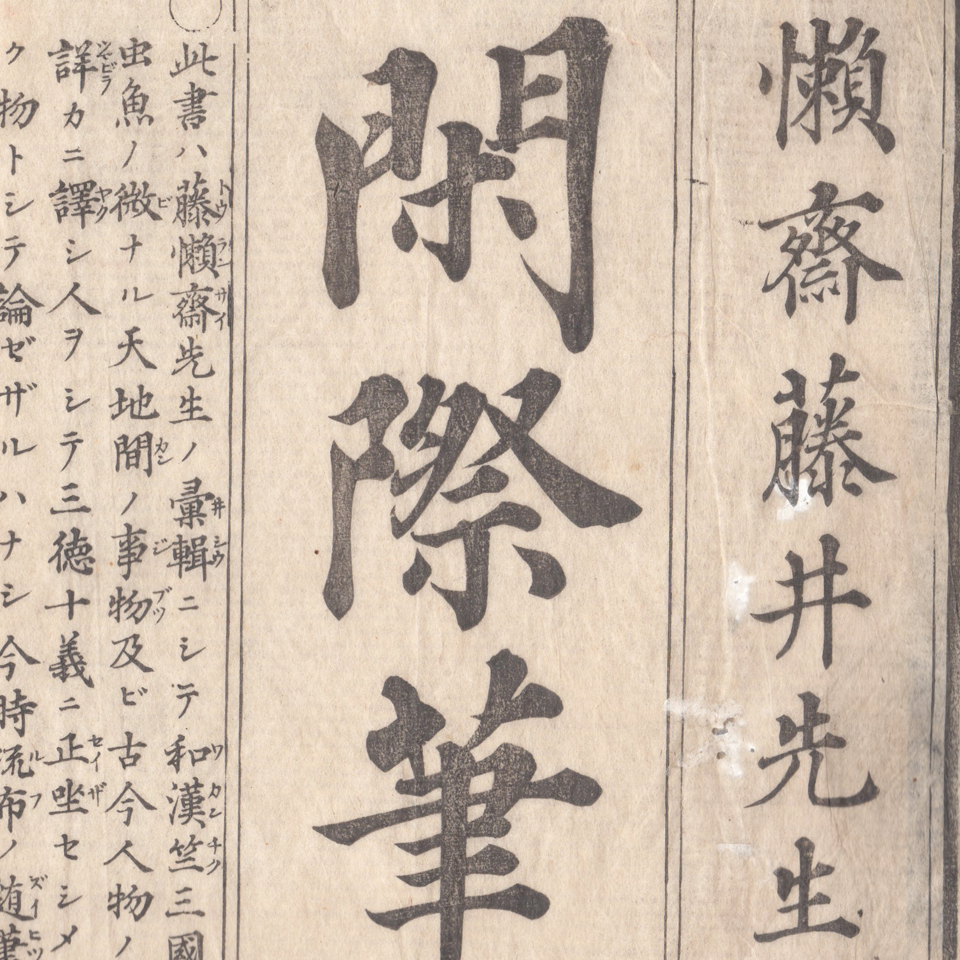 懶齋藤井先生
閑際筆
此書ハ藤懶齋先生ノ彙輯ニシテ和漢竺三國
虫魚ノ微ナル天地間ノ事物及ビ古今人物ノ
詳カニ譯シ人ヲシテ三徳十義ニ正坐セシメ
ク物トシテ論ゼザルハナシ今時流布ノ随筆